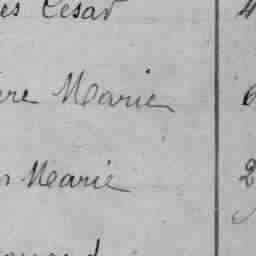 es César 4
re Marie 6
Marie 2